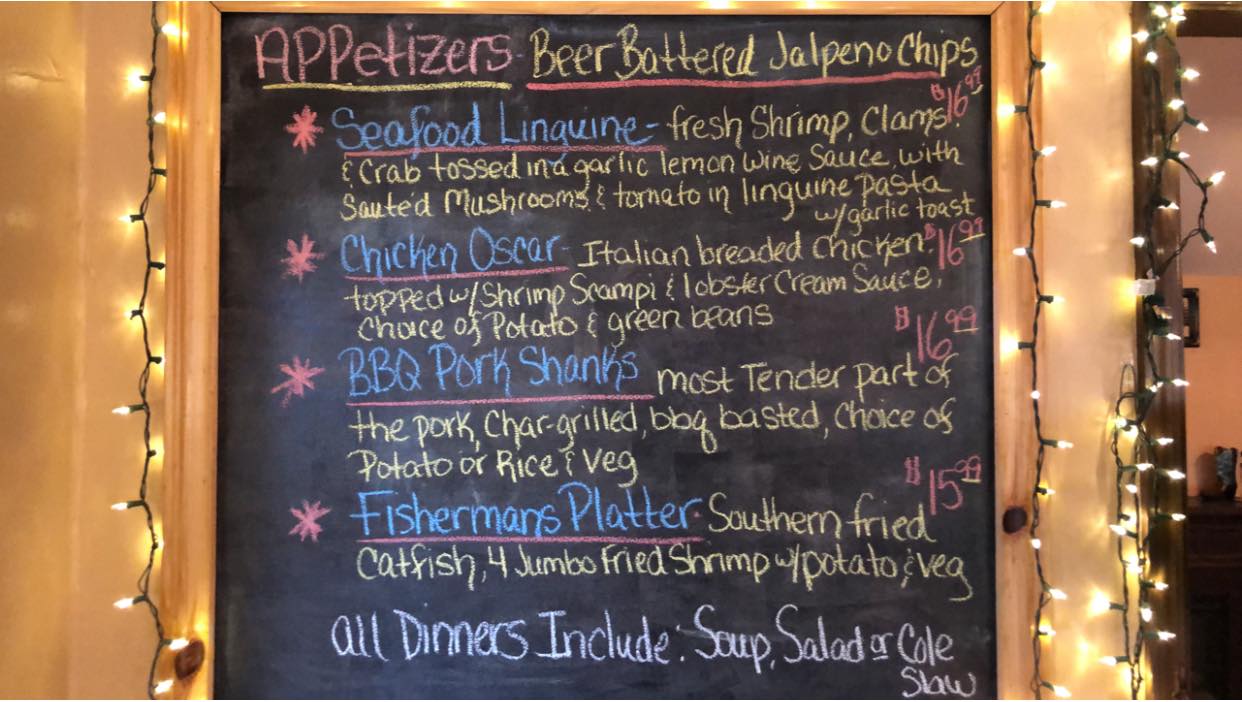 APPetizers - Beer Battered Jalpeno Chips
* Seafood Linguine - fresh Shrimp, Clams $16.99
& Crab tossed in a garlic lemon wine Sauce, with
Sauté'd Mushrooms & tomato in linguine pasta
w/garlic toast
* Chicken Oscar - Italian breaded chicken $16.99
topped w/ Shrimp Scampi & lobster Cream Sauce,
Choice of Potato & green beans
$16.99
* BBQ Pork Shanks most Tender part of
the pork, Char-grilled, bbq basted, Choice of
Potato or Rice & Veg
$15.99
* Fishermans Platter Southern fried
Catfish, 4 Jumbo Fried Shrimp w/potato & veg
all Dinners Include: Soup, Salad or Cole
Slaw